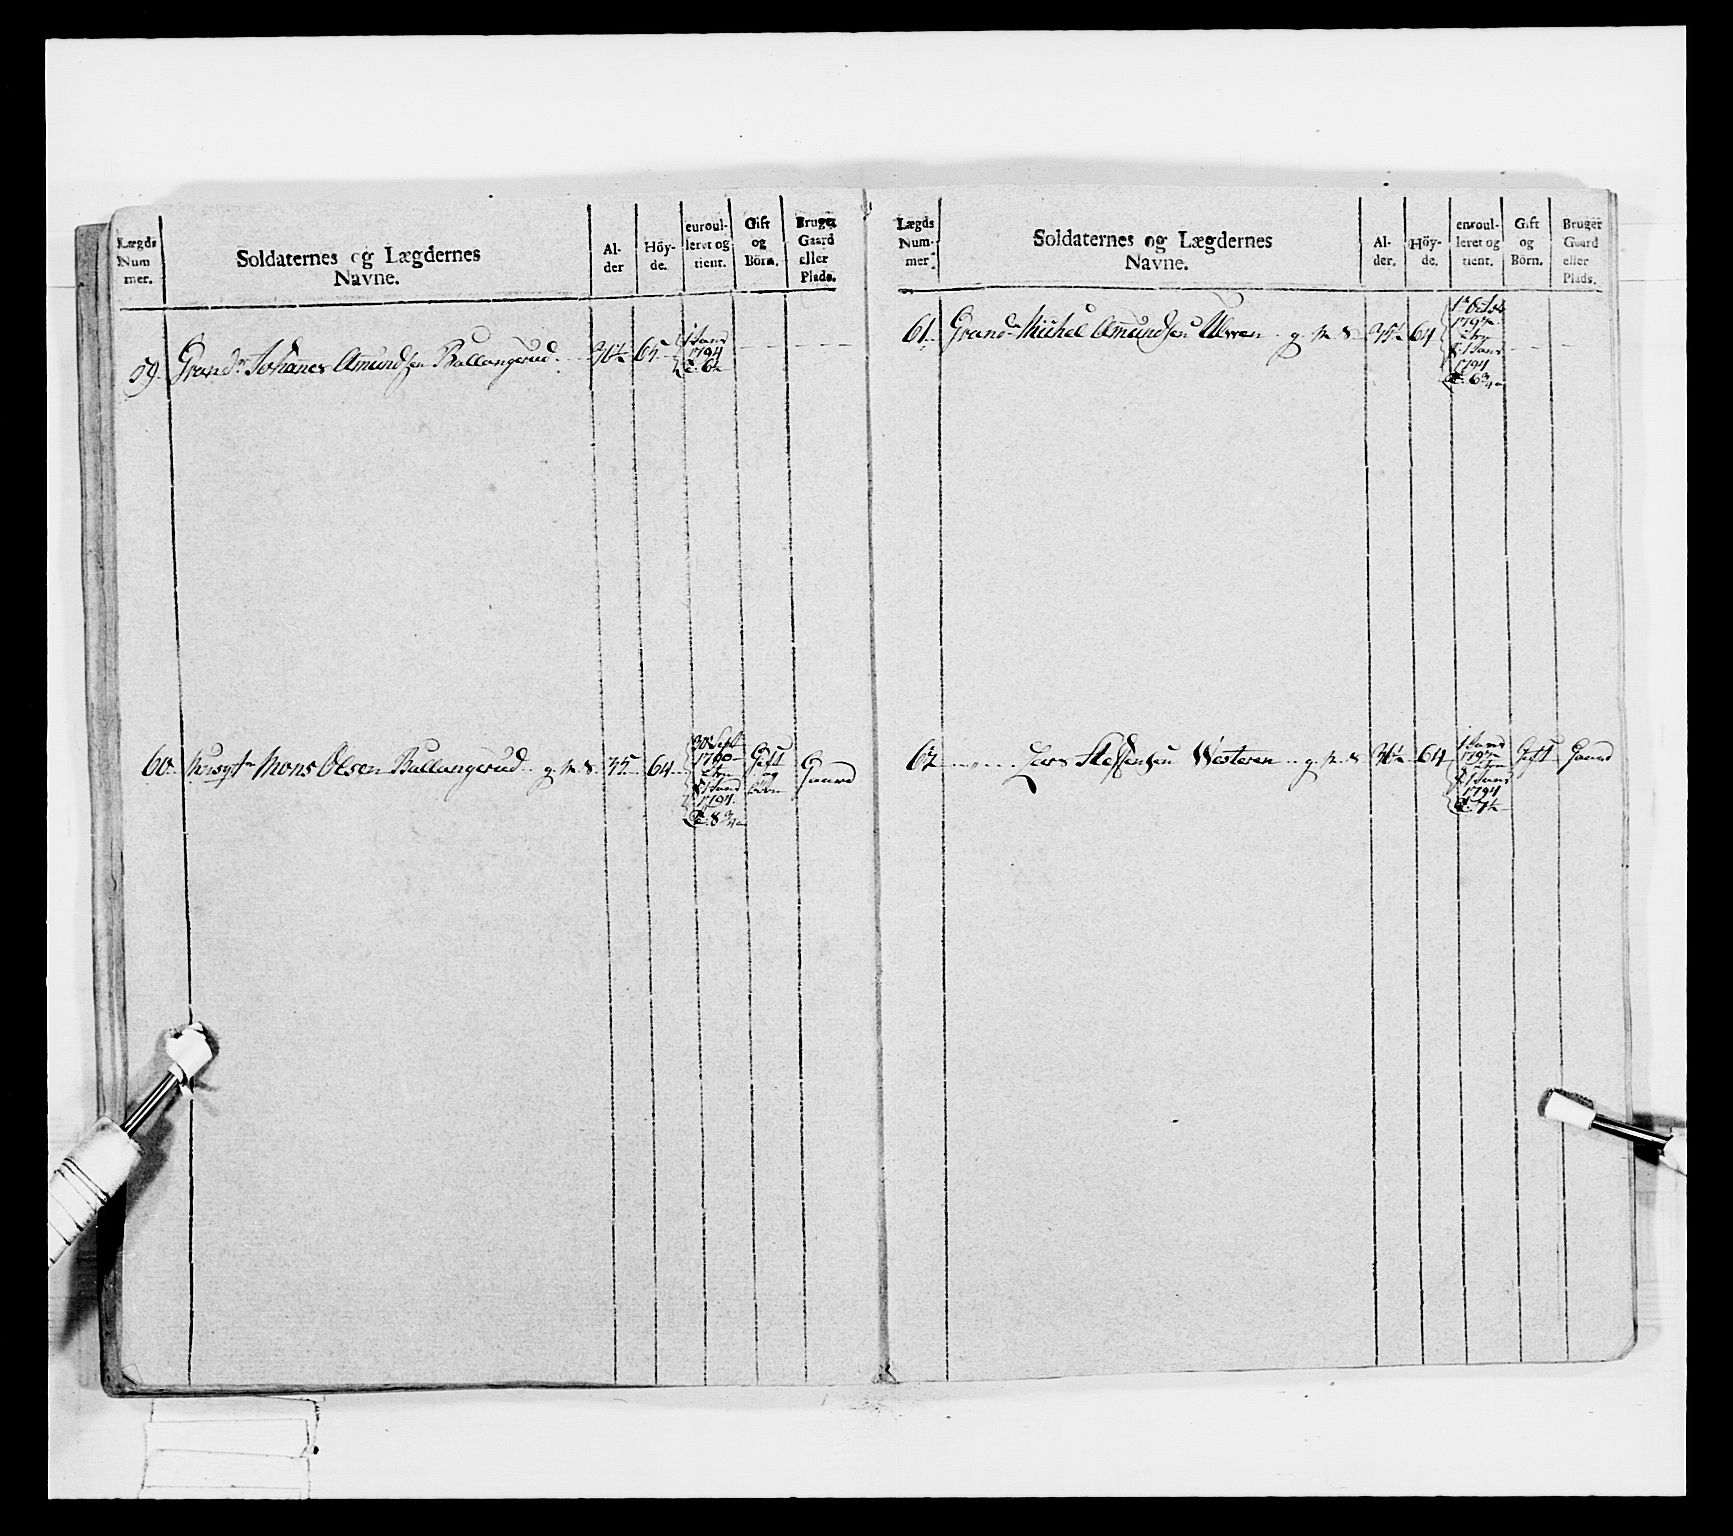 Lægds Num mer.
Soldaternes og Lægdernes Navne.
Al- der
Höy- de.
euroul- leret og tient.
Gift og Börn.
Bruger Gaard eller Plads.
59. Grand:r Johannes Amundsen Ballangerud 31½ 65
1 Janr
1794
60. Mons Olsen Ballangerud g. M. S. 35 64
30 Sept
1790
1 Janr
1794
8 3/4
Gift
og
börn
Gaard
Lægds Num- mer.
Soldaternes og Lægdernes Navne.
Al- der.
Höy- de.
enroul- leret og tient.
Gift og Börn.
Bruger Gaard eller Plads.
61. Grand:r Michel Amundsen Ulveen g. M. S 64
1 Janr
1794
6 3/4
62 Lars Westeren g. M. S 64
1 Janr
1 Janr
1794
Gift Gaard